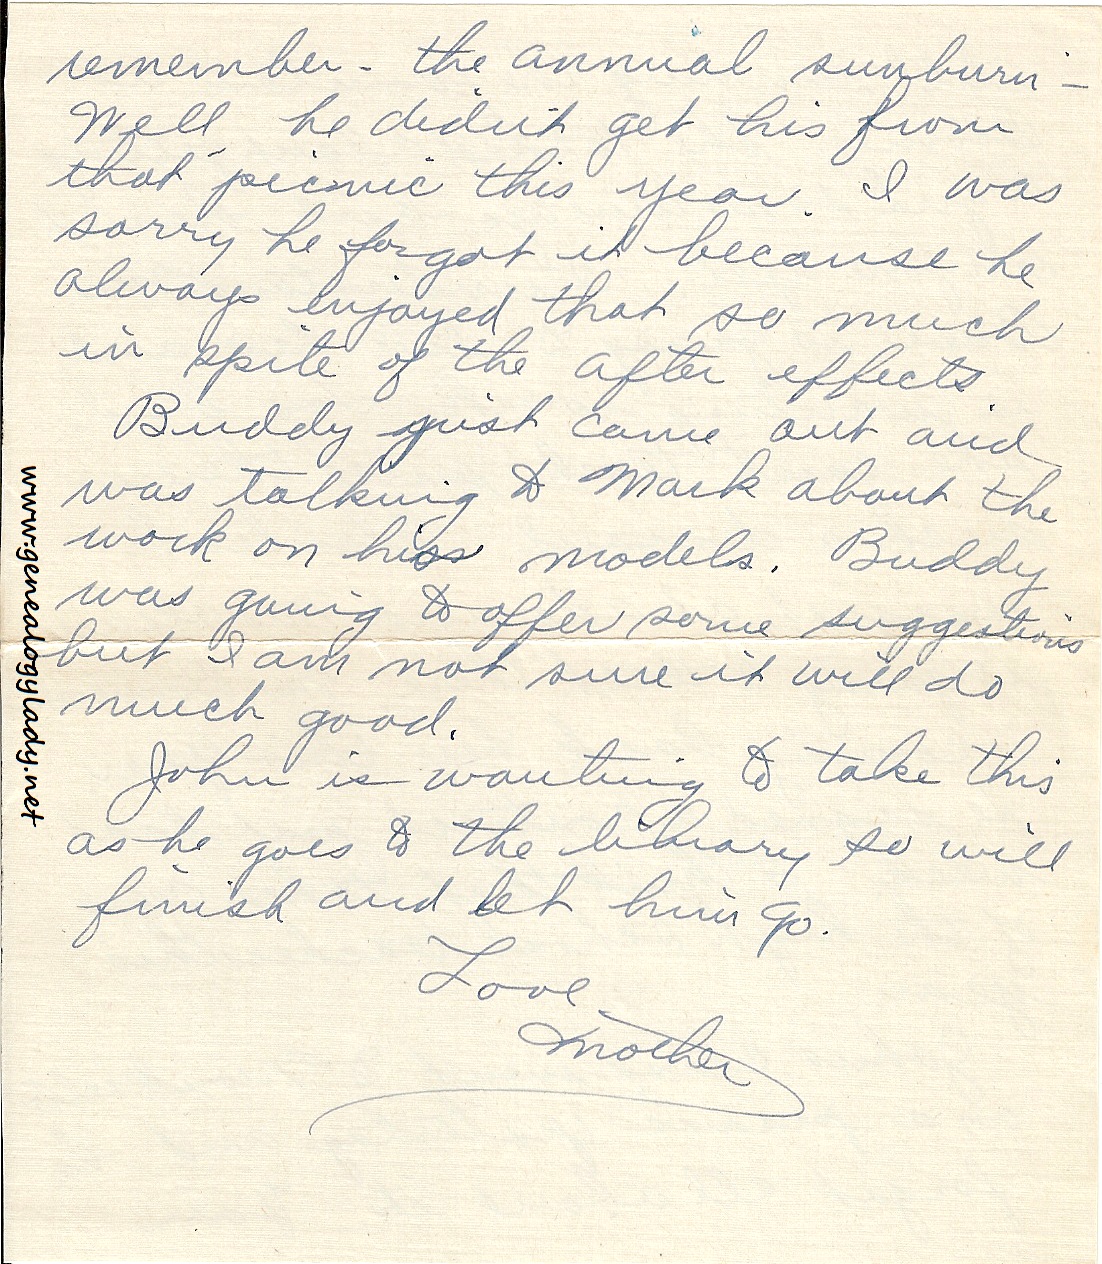 remember - the annual sunburn -
Well, he didn't get his from
that picnic this year. I was
sorry he forgot it because he
always enjoyed that so much
in spite of the after effects.
Buddy just came out and
was talking to Mark about the
work on his models. Buddy
was going to offer some suggestions
but I am not sure it will do
much good.
John is wanting to take this
as he goes to the library so will
finish and let him go.
Love
Mother
www.genealogylady.net